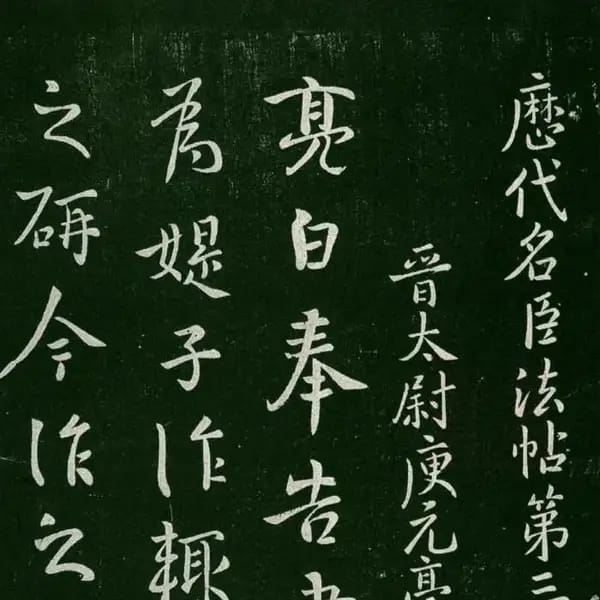 厯代名臣法帖第三
晉太尉庾元亮
亮白奉告
為媞子作輒
之研今作之